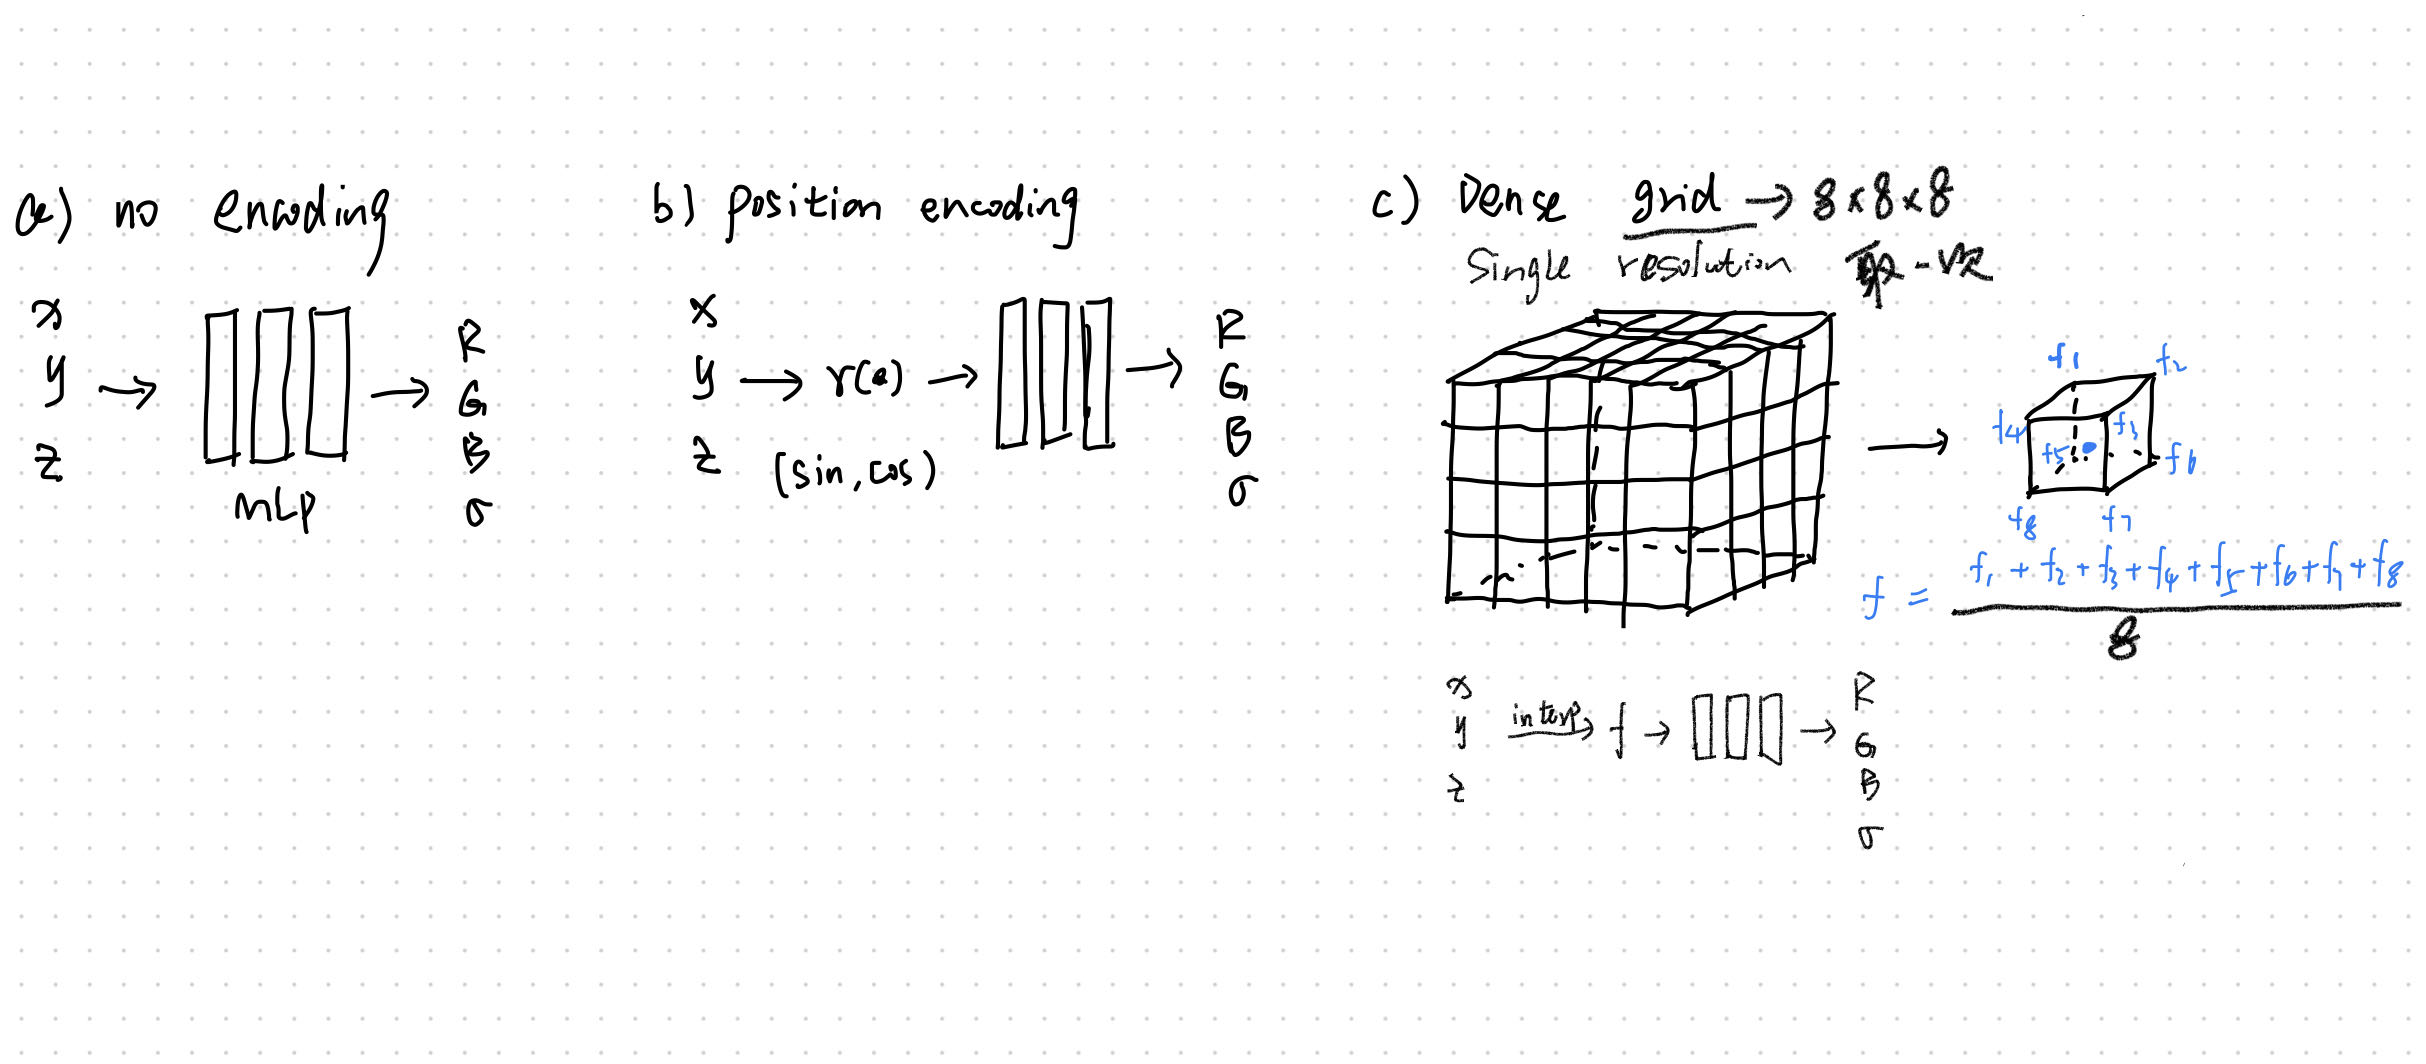 a) no encoding
x
y
z
→
MLP
→
R
G
B
σ
b) position encoding
x
y
z
→ r(a) →
(sin, cos)
→
R
G
B
σ
c) Dense grid → 8×8×8
Single resolution 取一次
→
f1 f2
f4 f3
f5 f6
f8 f7
f = f1 + f2 + f3 + f4 + f5 + f6 + f7 + f8
8
x
y
z
interp → f → →
R
G
B
σ